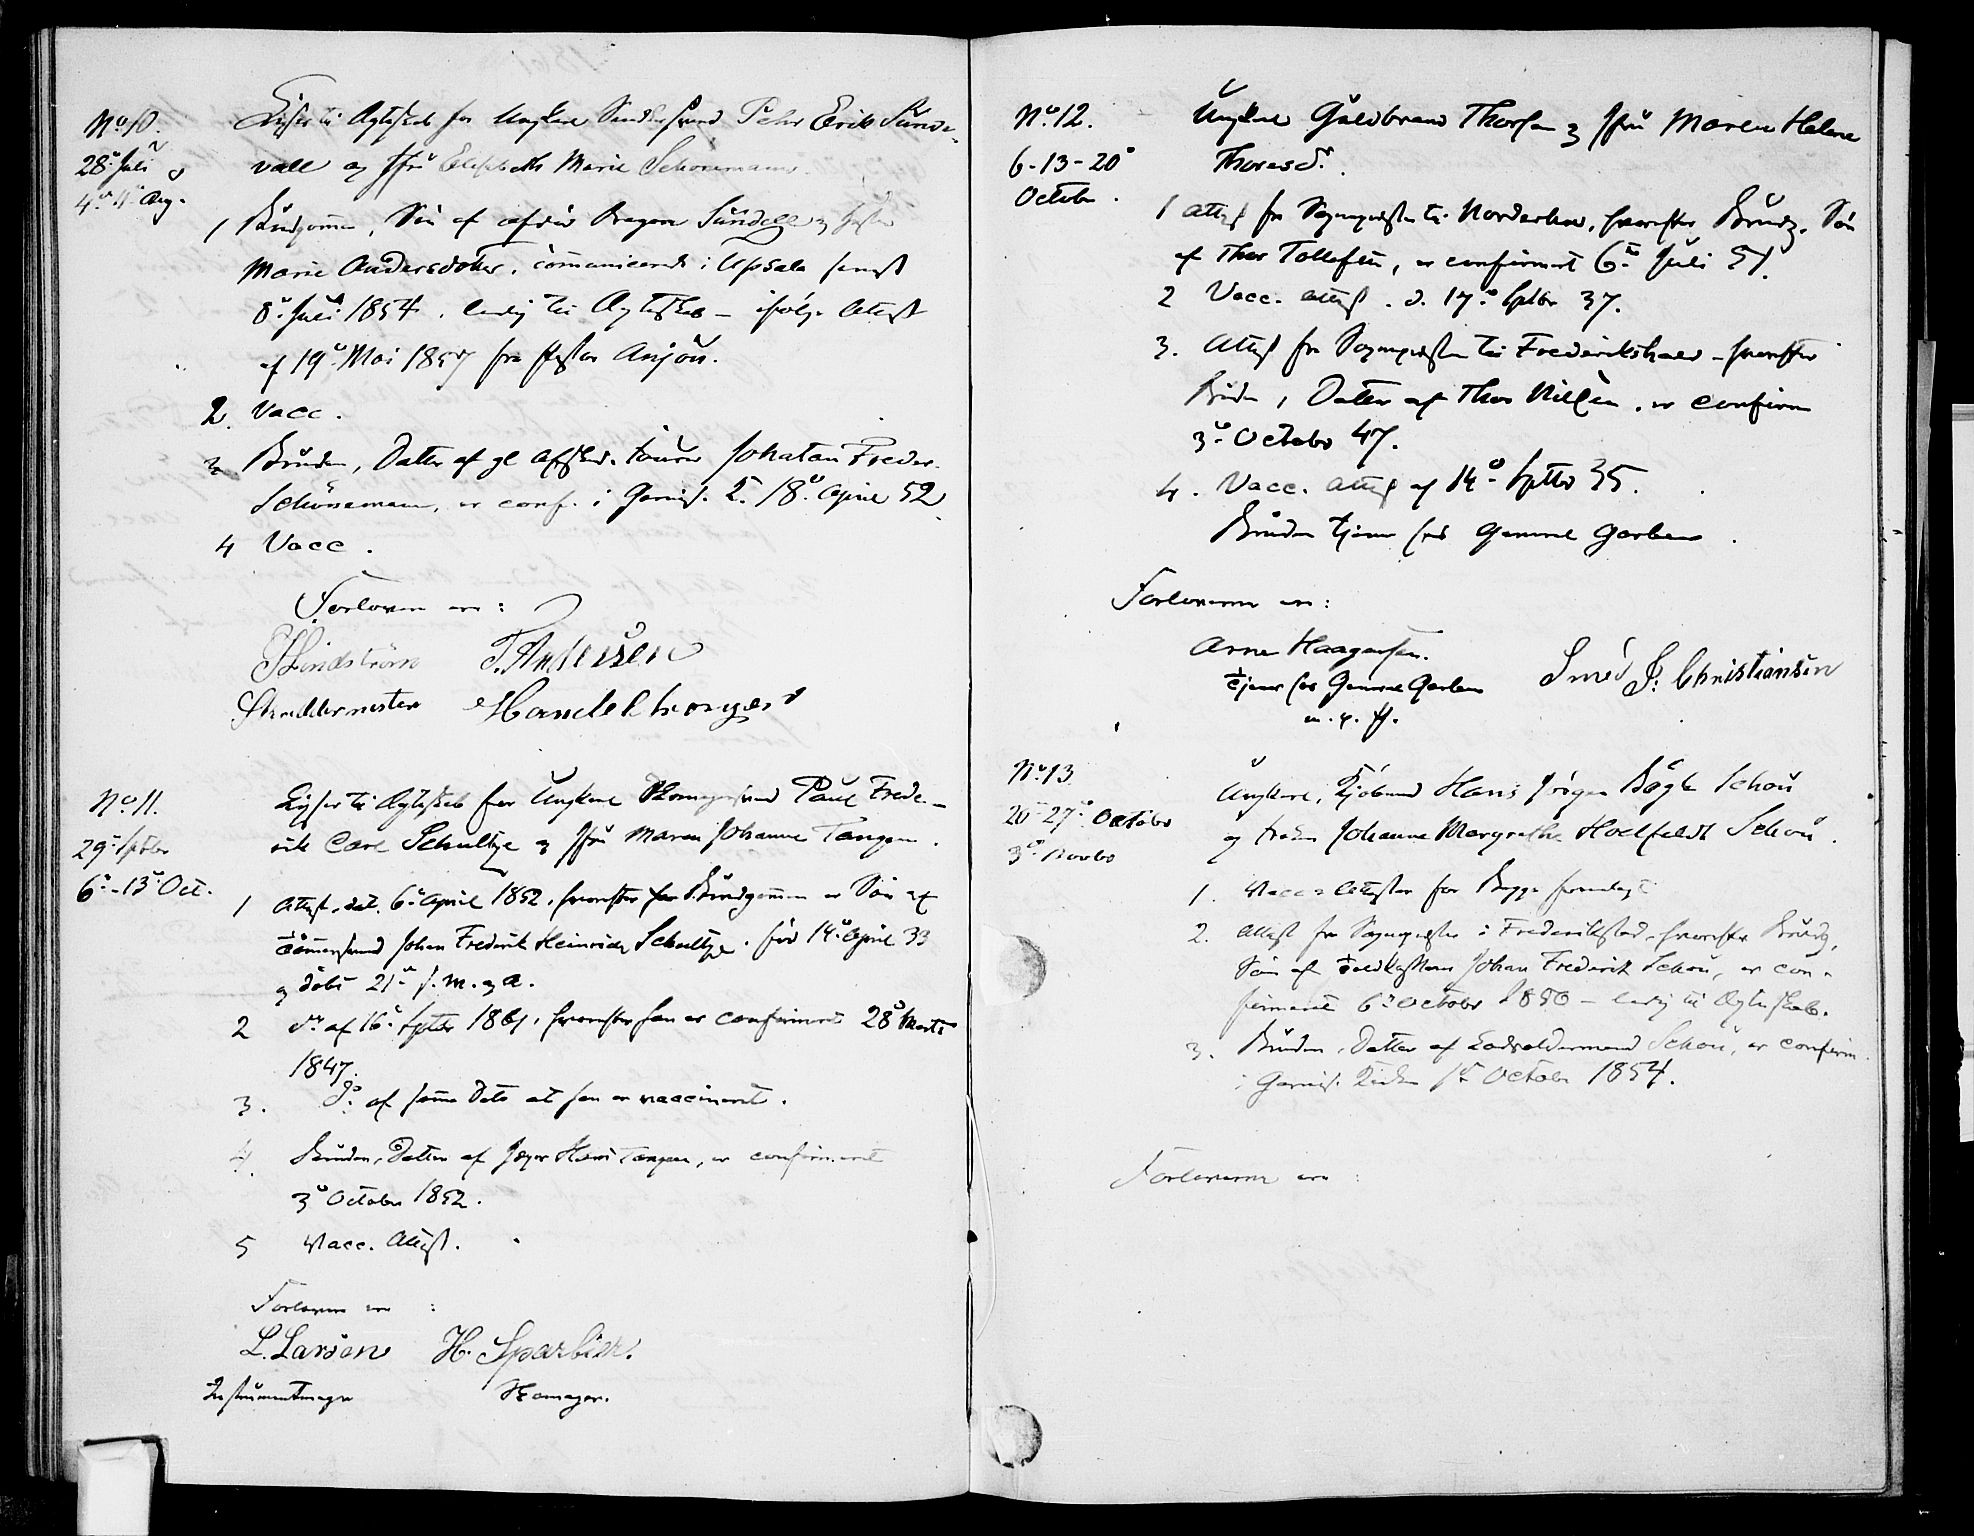 1861
No 10.
28de Juli og
4de 11te Aug.
Lyser til Ægteskab for Ungkarl Pehr Erik Sunde-
vall og Jfr Elisabeth Marie Schönemann.
1 Brudgommen, Søn af afdøde Sundell og Hustru
Marie Andersdotter, communicerede i Upsala
8de Juli 1854. ledig til Ægteskab - ifølge Attest
af 19de Mai 1857 fra Pastor Anjou.
2. Vacc.
3 Bruden, Datter af gl Johatan Freder.
Schönemann, er conf. i Garnis. K. 18de April 52
4 Vacc.
Forlovere ere:
Lindström T. Andersen
Handelsborger
No 11.
29de Septbr
6te-13de Oct.
Lyser til Ægteskab for Ungkarl Skomagersvend Paul Frede-
rik Carl Schultze og Jfr Maren Johanne Tangen.
1 Attest, dat. 6te April 1852, hvorefter Brudgommen er Søn af
Tømmersvend Johan Frederik Heinrich Schultze. fød 14de April 33
og døbt 21de s. M. og A.
2 do af 16de Septbr 1861, hvorefter han er confirmeret 28de Marts
1847.
3. Do af samme Dato at han er vaccineret.
4. Bruden, Datter af Jæger Hans Tangen, er confirmeret
3de October 1852.
5 Vacc. Attest.
Forlovere ere :
L. Larsen H. Sparbier.
Instrumentmager Skomager.
No. 12.
6-13-20de
October.
Ungkarl Guldbrand Thorsen og Jfr Maren Helene
Thoresd.
1 Attest fra Sognepresten til Norderhov, hvorefter Brudg. Søn
af Thor Tollefsen, er confirmeret 6te Juli 51.
2 Vacc. attest. d. 17de Septbr 37.
3. Attest fra Sognepresten til Frederikshald - hvorefter
Bruden, Datter af Thor Nilsen, er confirm
3de October 47.
4. Vacc. attest af 14de Septbr 35.
Bruden tjener hos General Garben.
Forloverne ere:
Arne Haagensen. Smed J: Christiansen
tjener hos General Garben
m. p. P.
No. 13
20de 27de October
3de Novbr
Ungkarl, Kjøbmand Hans Jørgen Bøgh Schou
og Frøken Johanne Margrethe Hoelfeldt Schou.
1. Vacc. Attester for Begge fremlagt
2. Attest fra Sognepresten i Frederikstad, hvorefter Brudg.
Søn af Toldkasserer Johan Frederik Schou, er con-
firmeret 6te October 1850 - ledig til Ægteskab.
3. Bruden, Datter af Schou, er confirm.
i Garnis. Kirken 1ste October 1854.
Forloverne ere :